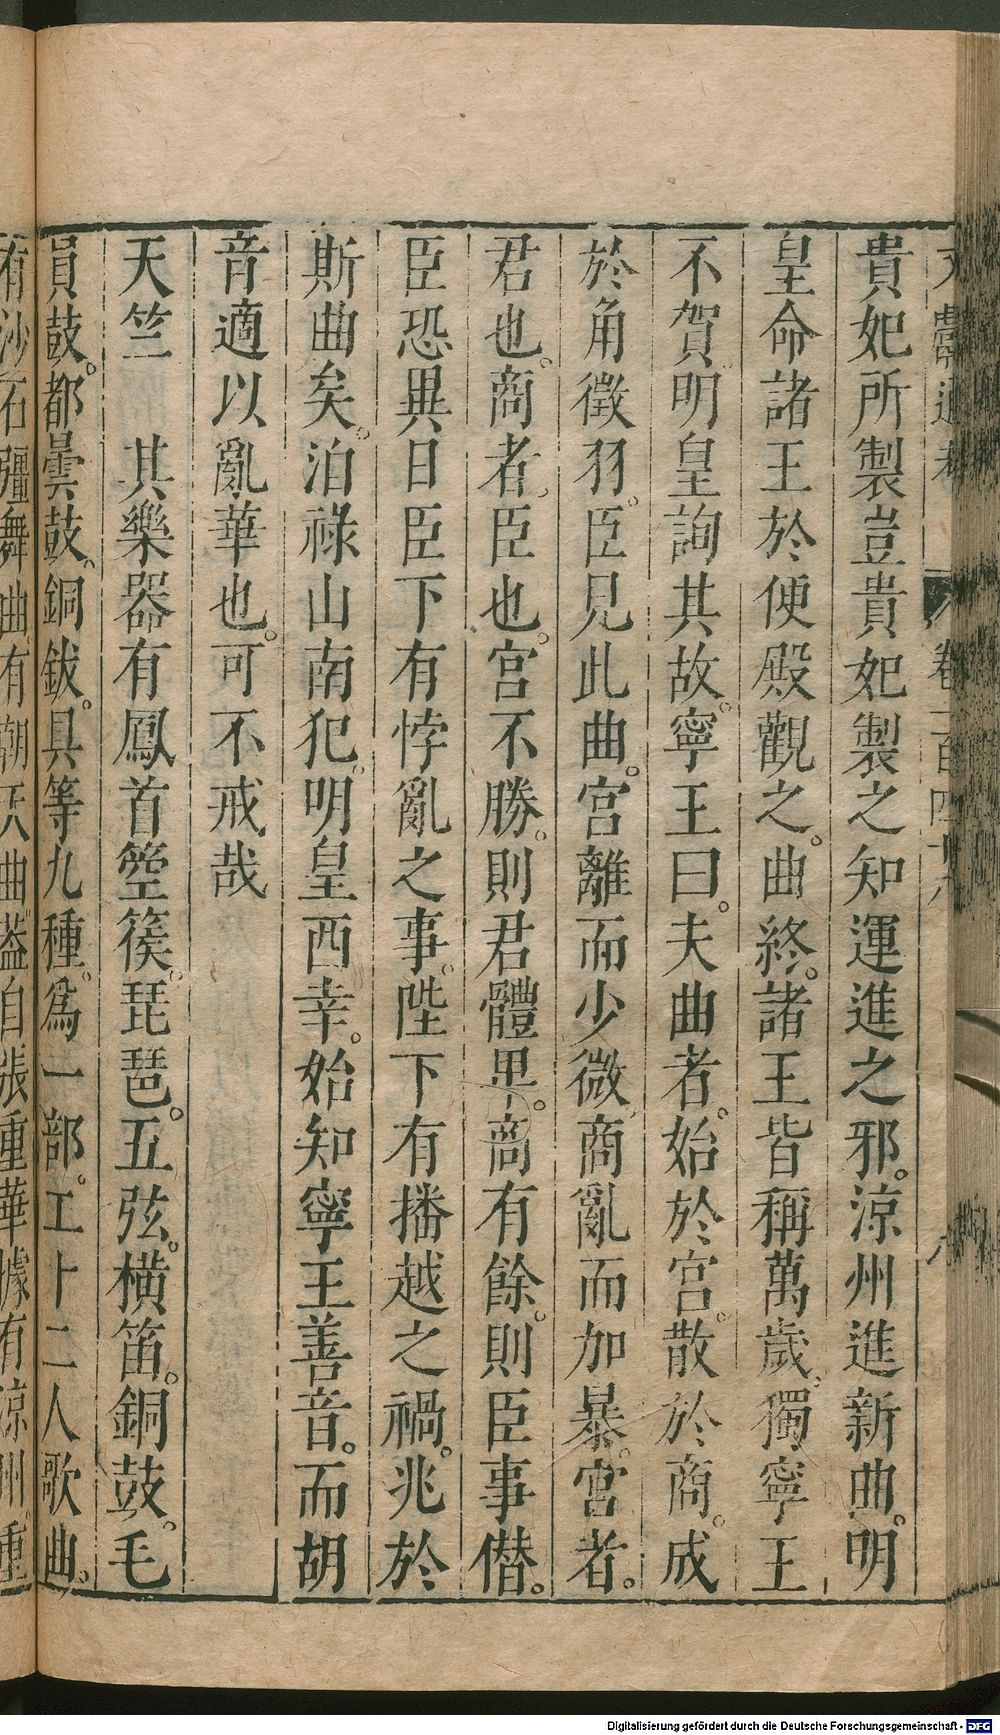 文獻通考 卷一百四十八 六
貴妃所製豈貴妃製之知運進之邪。涼州進新曲。明
皇命諸王於便殿觀之。曲終。諸王皆稱萬歲。獨寧王
不賀。明皇詢其故。寧王曰。夫曲者。始於宮。散於商。成
於角徵羽。臣見此曲。宮離而少微。商亂而加暴。宮者。
君也。商者。臣也。宮不勝。則君體卑。商有餘。則臣事僣。
臣恐異日臣下有悖亂之事。陛下有播越之禍。兆於
斯曲矣。洎祿山南犯。明皇西幸。始知寧王善音。而胡
音適以亂華也。可不戒哉
天竺 其樂器有鳳首箜篌。琵琶。五弦。橫笛。銅鼓。毛
員鼓。都曇鼓。銅鈸。具等九種。爲一部。工十二人歌曲。
有沙石疆舞曲。有朝天曲。蓋自張重華據有涼州。重
Digitalisierung gefördert durch die Deutsche Forschungsgemeinschaft - DFG